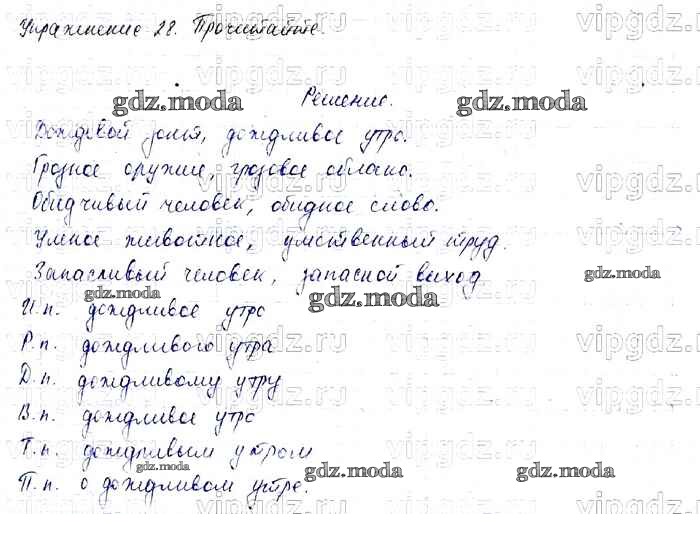 Упражнение 28. Прочитайте.
Решение.
Дождевой зонт, дождливое утро.
Грозное оружие, грозовое облако.
Обидчивый человек, обидное слово.
Умное животное, умственный труд.
Запасливый человек, запасной выход
И.п. дождливое утро
Р.п. дождливого утра
Д.п. дождливому утру
В.п. дождливое утро
Т.п. дождливым утром
П.п. о дождливом утре.
gdz.moda
gdz.moda
gdz.moda
gdz.moda
gdz.moda
gdz.moda
gdz.moda
gdz.moda
vipgdz.ru
vipgdz.ru
vipgdz.ru